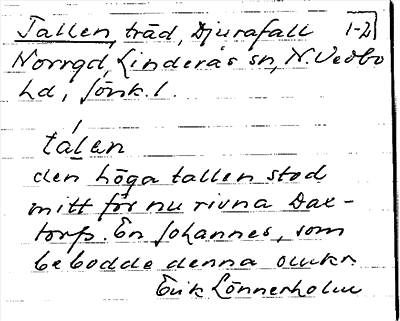 Tallen, träd, Djurafall 1-2)
Norrgd, Linderås sn, N. Vedbo
hd, Jönk. l.
talen
den höga tallen stod
mitt för nu rivna Dax-
torp. En Johannes, som
bebodde denna omkr.
Erik Lönnerholm